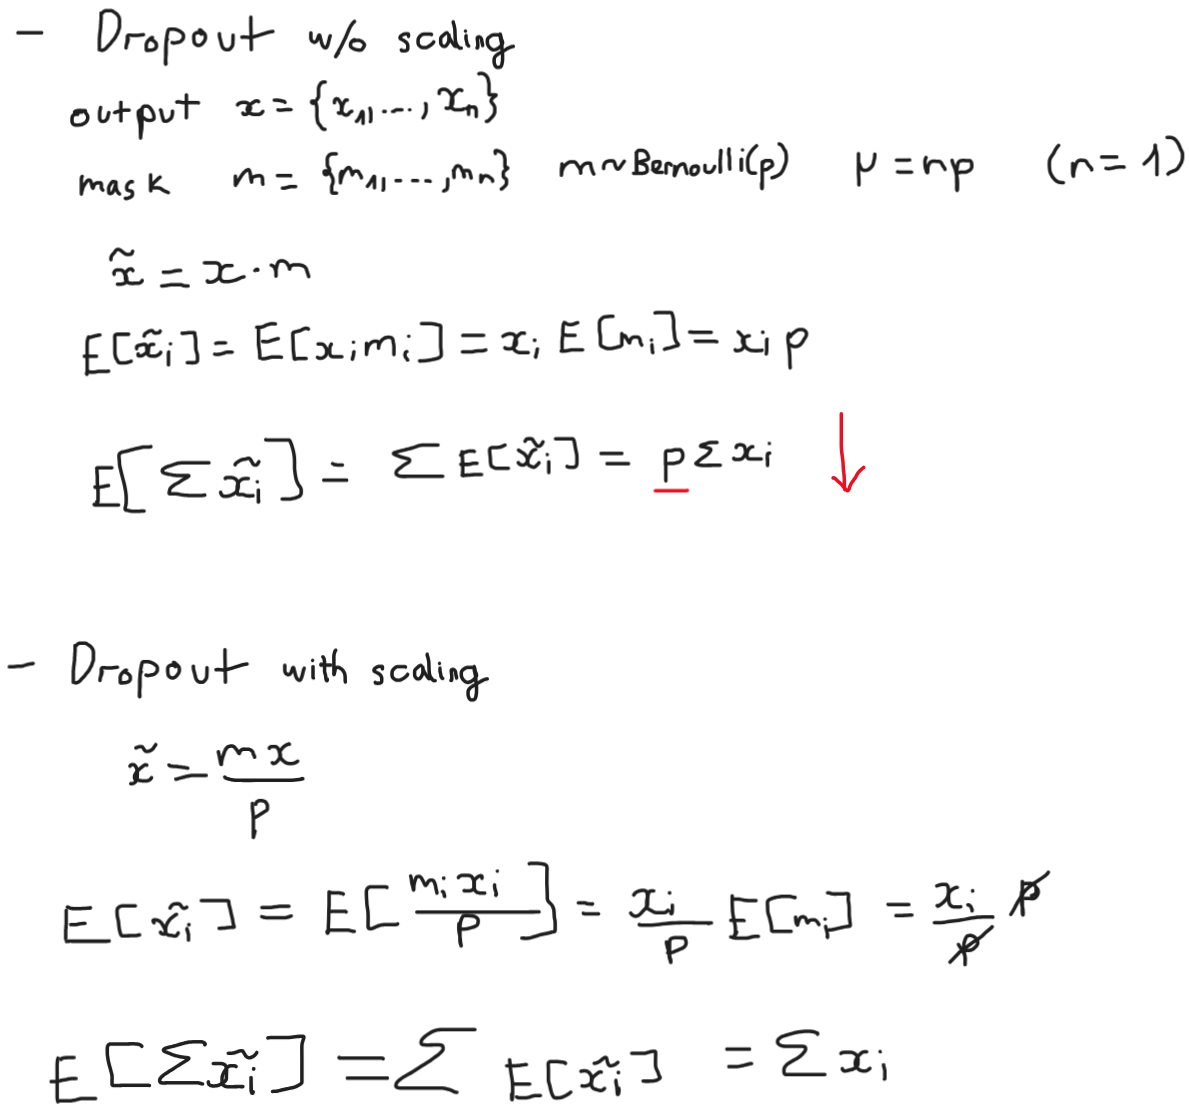 - Dropout w/o scaling
output x = {x₁, ..., xₙ}
mask m = {m₁, ..., mₙ} m ~ Bernoulli(p) μ = np (n = 1)
x̃ = x · m
E[x̃ᵢ] = E[xᵢmᵢ] = xᵢ E[mᵢ] = xᵢ p
E[Σ x̃ᵢ] = Σ E[x̃ᵢ] = p Σ xᵢ ↓
- Dropout with scaling
x̃ = mx / p
E[x̃ᵢ] = E[mᵢxᵢ / p] = xᵢ / p E[mᵢ] = xᵢ / p p
E[Σx̃ᵢ] = Σ E[x̃ᵢ] = Σ xᵢ